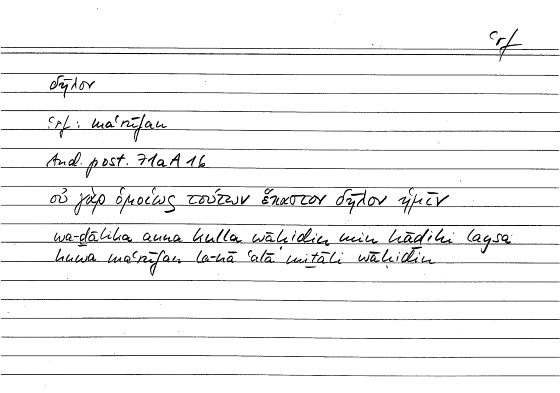 ʿrf
δῆλον
ʿrf: maʿrūfan
And. post. 71a A 16
οὐ γὰρ ὁμοίως τούτων ἕκαστον δῆλον ἡμῖν
wa-ḏālika anna kulla wāḥidin min hāḏihi laysa
huwa maʿrūfan la-nā ʿalā miṯāli wāḥidin